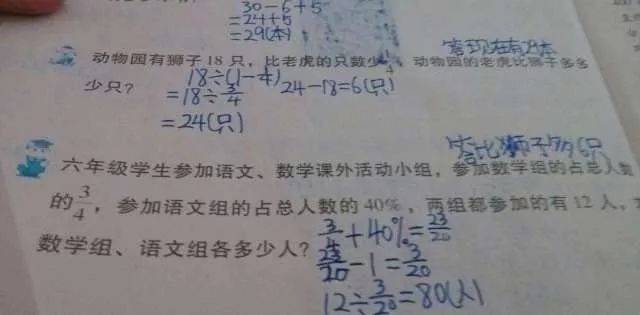 30-6+5
=24+5
=29(本)
答现在有29本
动物园有狮子 18 只，比老虎的只数少1/4，动物园的老虎比狮子多多
少只？
18÷(1-1/4)
=18÷3/4
=24(只)
24-18=6(只)
答比狮子多6只
六年级学生参加语文、数学课外活动小组，参加数学组的占总人数
的3/4，参加语文组的占总人数的 40%，两组都参加的有 12 人，
数学组、语文组各多少人？
3/4+40%=23/20
23/20-1=3/20
12÷3/20=80(人)